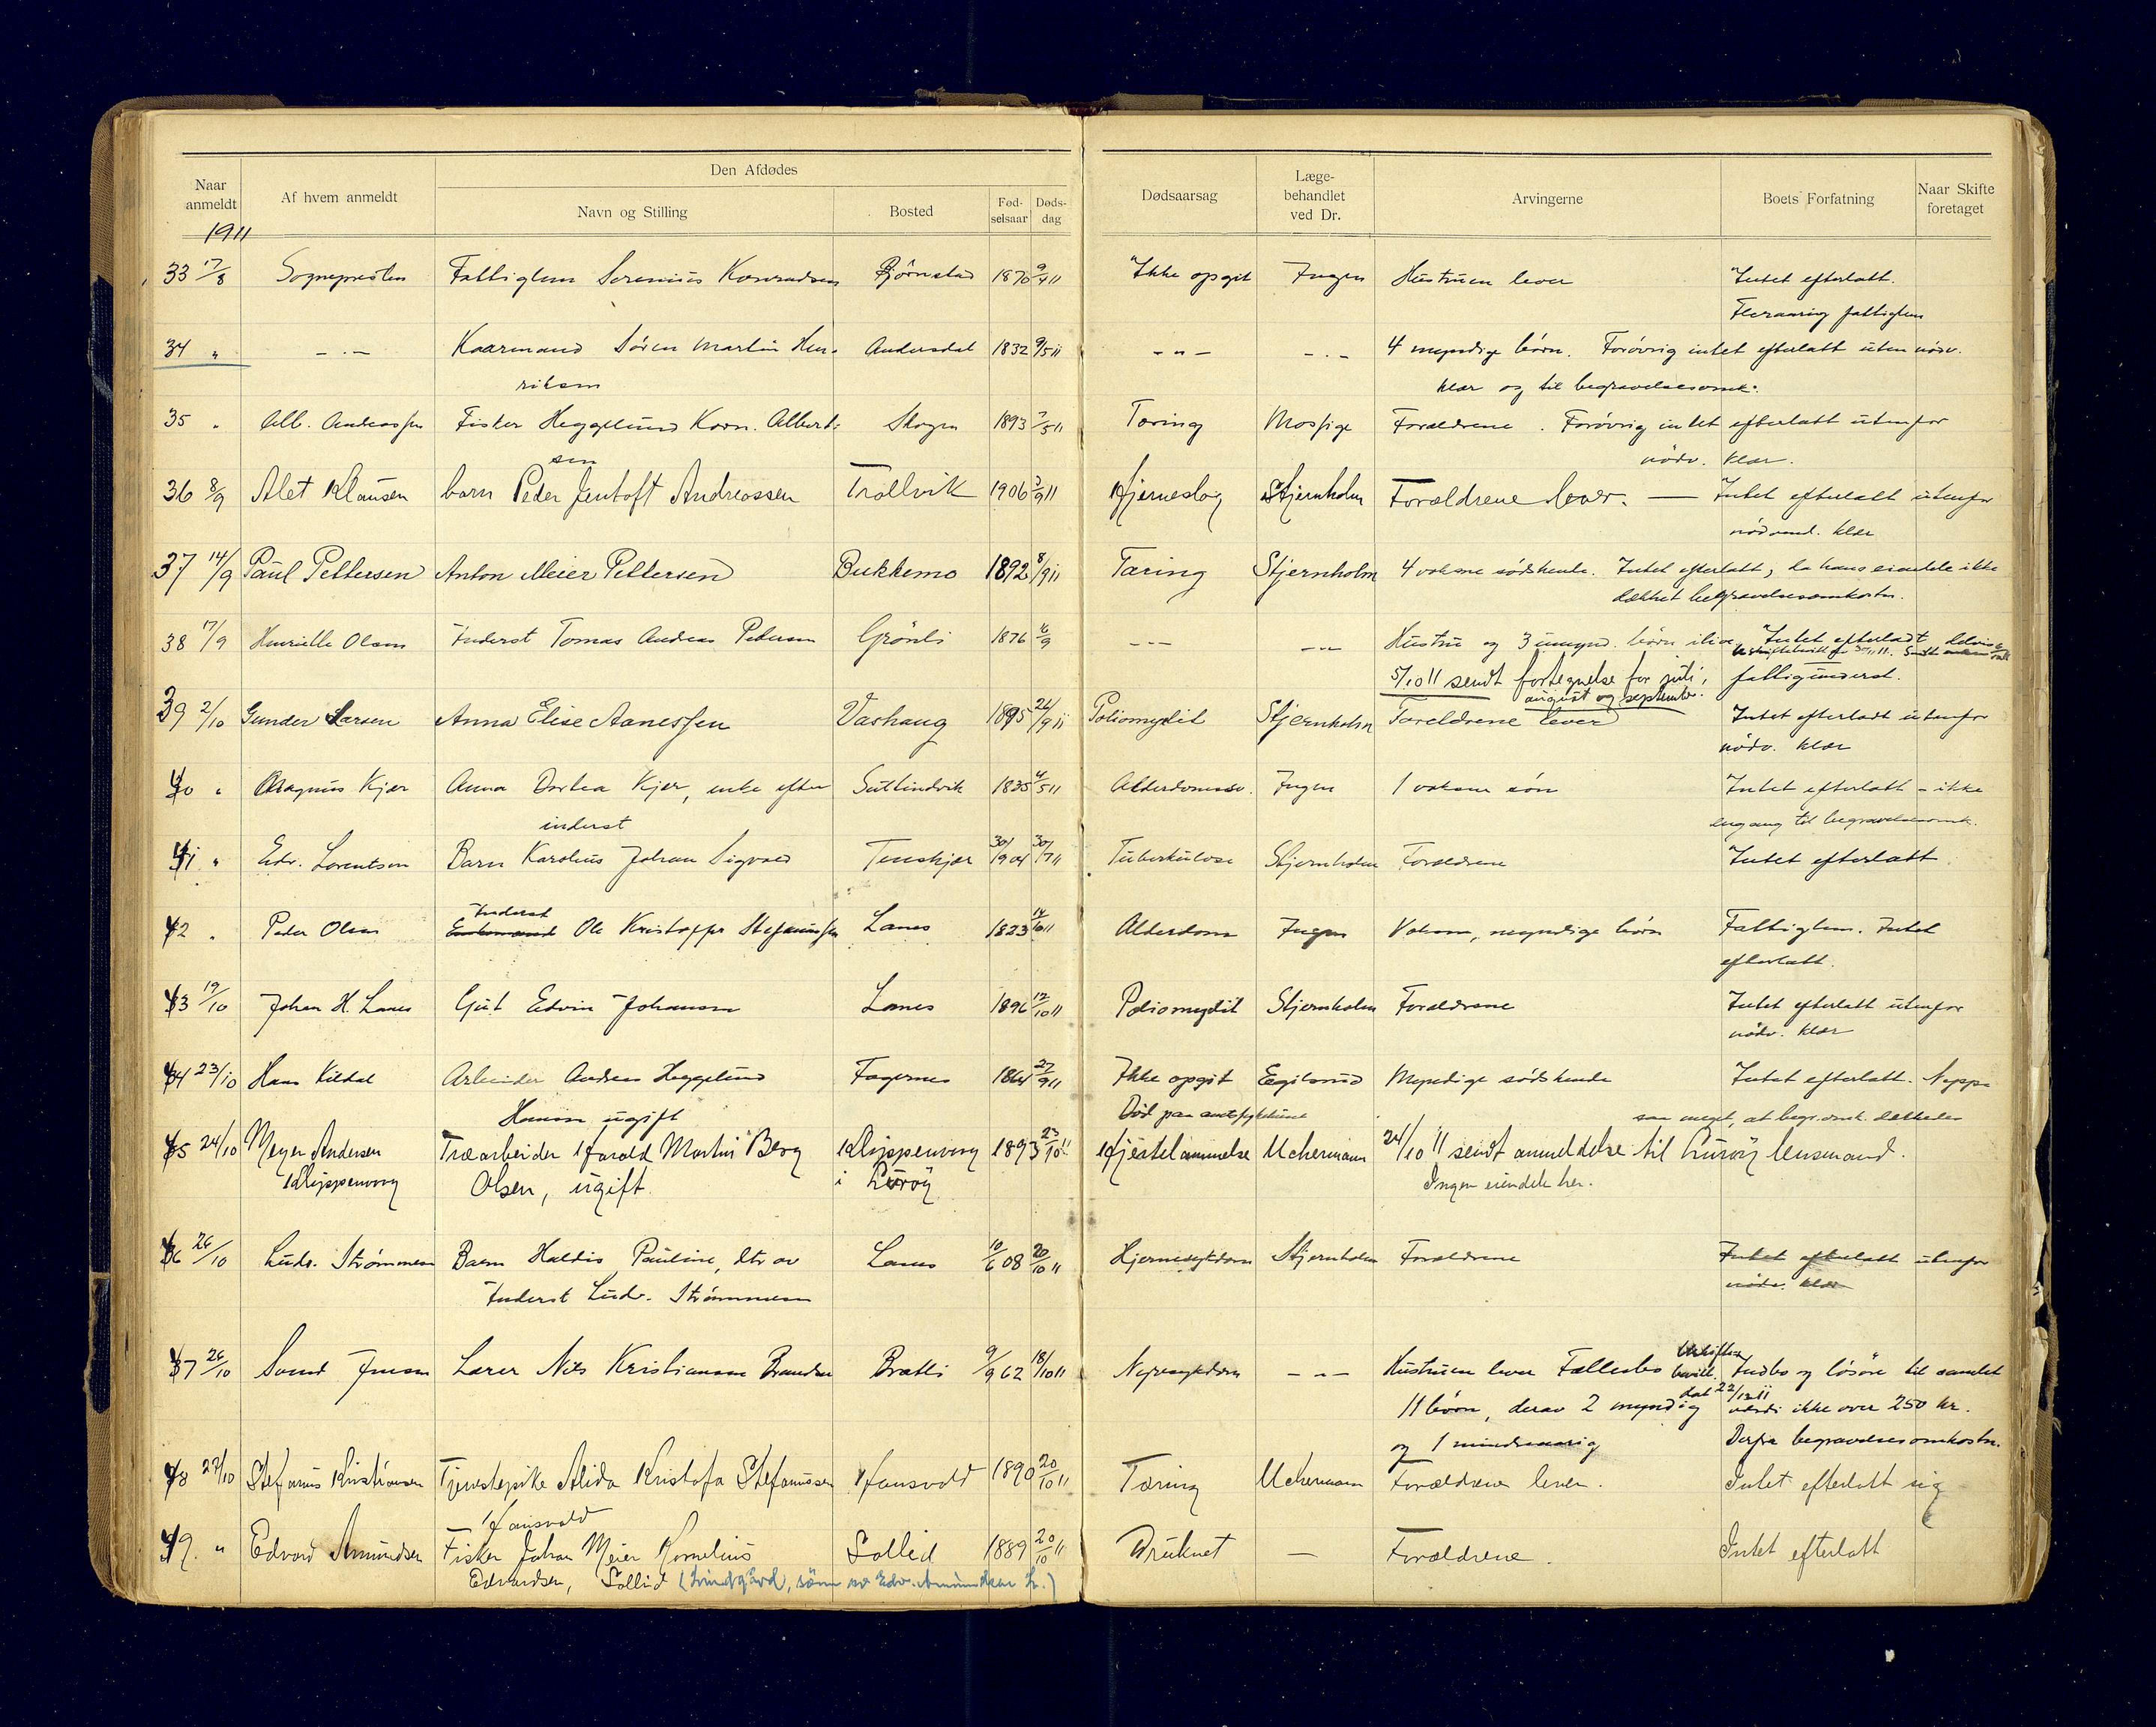 Naar anmeldt
Af hvem anmeldt
Den Afdødes
Navn og Stilling
Bosted
Fød-selsaar
Døds-dag
Dødsaarsag
Læge-behandlet ved Dr.
Arvingerne
Boets Forfatning
Naar Skifte foretaget
1911
33 17/8 Sognepresten Fattiglem Serenius Konradsen Bjørnstad 1870 9/4 11 Ikke opgit Ingen Hustruen lever Intet efterlatt.
Fleraarig fattiglem
34 " — " — Kaarmand Sören Martin Hen- Andersdal 1832 9/5 11 — " — — " — 4 myndige börn. Forövrig intet efterlatt uten nödv.
riksen klær og til begravelsesomk.
35 " Alb. Andreassen Fisker Hegglund Korn. Albert- Skogen 1893 7/5 11 Tæring Mossige Forældrene. Forövrig intet efterlatt utenfor
sen nödv. klær.
36 8/9 Alet Klausen barn Peder Jentoft Andreassen Trollvik 1906 3/9 11 Hjerneslag Stjernholm Forældrene lever. — Intet efterlatt utenfor
nödvend. klær
37 14/9 Paul Pettersen Anton Meier Pettersen Bukkemo 1892 8/9 11 Tæring Stjernholm 4 voksne södskende. Intet efterlatt, da hans eiendele ikke
dækket begravelsesomkostn.
38 17/9 Henrielle Olsen Inderst Tomas Andreas Pedersen Grönli 1876 16/9 — " — — " — Hustru og 3 umynd. börn ilive Intet efterladt
5/10 11 sendt fortegnelse for juli, fattig inderst.
august og september.
39 2/10 Gunder Larsen Anna Elise Aanessen Vashaug 1895 24/9 11 Poliomyelit Stjernholm Forældrene lever Intet efterladt utenfor
nödv. klær
40 " Magnus Kjær Anna Dortea Kjær, enke efter Sutlindvik 1835 4/5 11 Alderdomssv. Ingen 1 voksen sön Intet efterlatt - ikke
inderst engang til begravelsesomk.
41 " Edv. Lorentsen Barn Karolius Johan Sigvald Tenskjær 30/1 1904 30/7 11 Tuberkulose Stjernholm Forældrene Intet efterlatt
42 " Peder Olsen Inderst Ole Kristoffer Stefanussen Lanes 1823 14/10 11 Alderdom Ingen Voksne, myndige börn Fattiglem. Intet
efterlatt.
43 19/10 Johan H. Lanes Gut Edvin Johansen Lanes 1896 12/10 11 Poliomyelit Stjernholm Forældrene Intet efterlatt utenfor
nödv. klær
44 23/10 Hans Kildal Arbeider Andreas Hegglund Fagernes 1864 27/9 11 Ikke opgit Egilsrud Myndige södskende Intet efterlatt. Neppe
Hansen, ugift Död paa amtssykehuset saa meget, at begr.omk. dækkedes
45 24/10 Meyer Andersen Træarbeider Harald Martin Berg Klippenvaag 1893 23/10 11 Hjertelammelse Uchermann 24/10 11 sendt anmeldelse til Luröy lensmand.
Klippenvaag Olsen, ugift. i Luröy Ingen eiendele her.
46 26/10 Ludv. Strømmesen Barn Haldis Pauline, dtr av Lanes 10/6 08 20/10 11 Hjernesykdom Stjernholm Forældrene Intet efterlatt utenfor
Inderst Ludv. Strömmesen nödv. klær
47 26/10 Svend Lærer Nils Kristiansen Bratli 9/9 62 18/10 11 Nyresykdom — " — Hustruen lever Fællesbo Indbo og lösöre til samlet
dat 22/12 11
11 börn, derav 2 myndig værdi ikke over 250 kr.
og 1 mindreaarig Derfra begravelsesomkostn.
48 27/10 Stefanus Kristiansen Tjenestepike Alida Kristofa Stefanussen Hansvold 1890 20/10 11 Tæring Uchermann Forældrene lever. Intet efterlatt sig
Hansvold
49. " Edvard Amundsen Fisker Johan Meier Kornelius Sollid 1889 20/10 11 Druknet — Forældrene. Intet efterlatt
Edvardsen, Sollid (Lindgård, sönn av Edv. Amundsen L.)